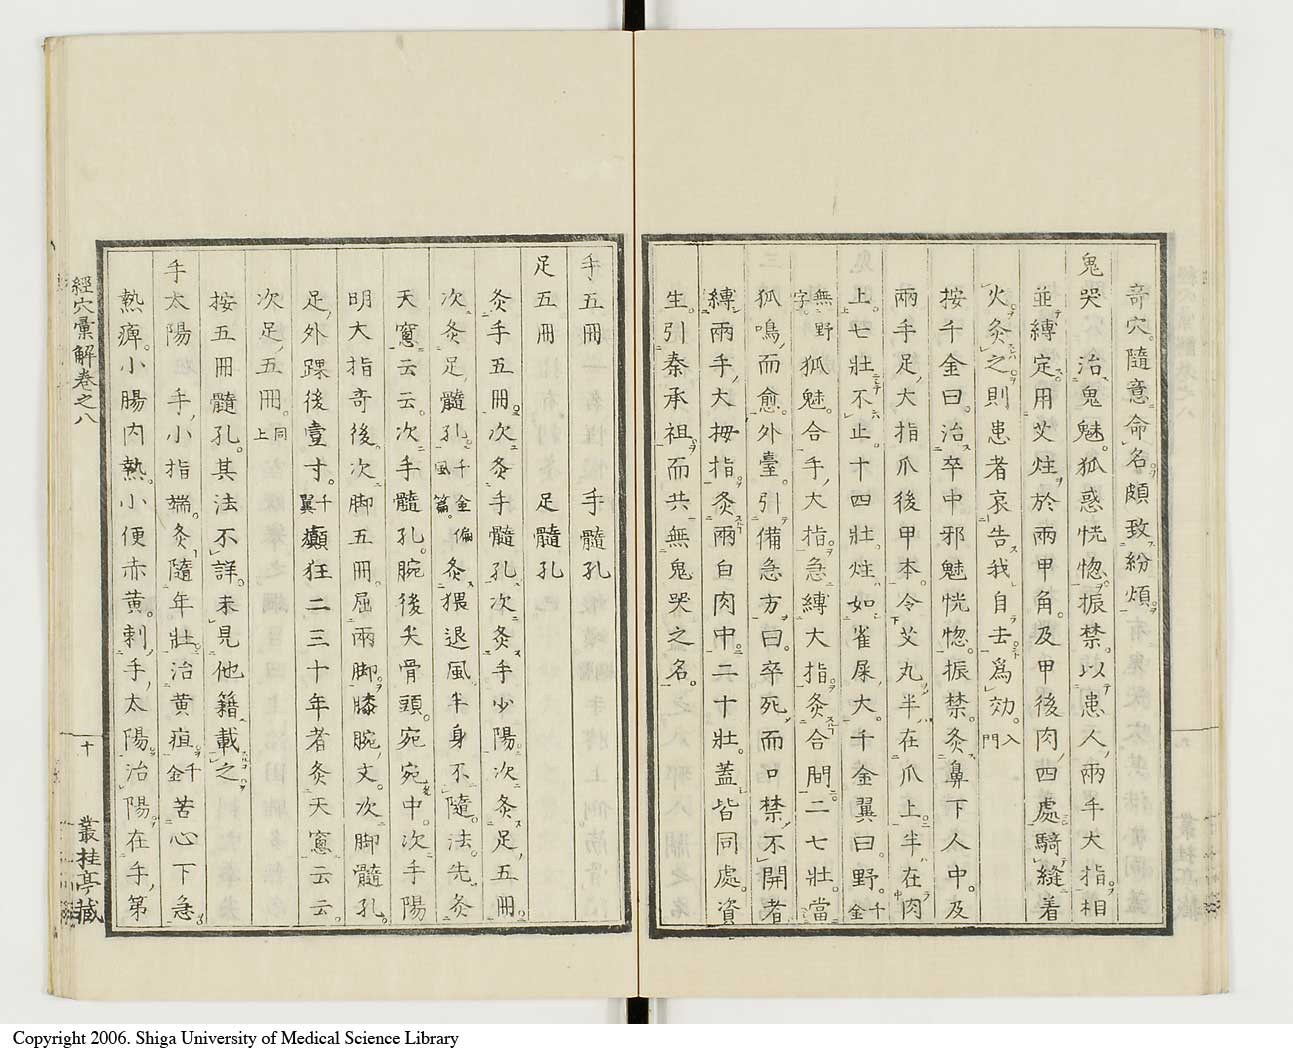 奇穴。隨意命名。頗致紛煩。
鬼哭　治鬼魅。狐惑恍惚。振禁。以患人兩手大指。相
並縛定。用艾炷於兩甲角。及甲後肉。四處騎縫。着
火灸之。則患者哀告我自去爲効。入門
按千金曰。治卒中邪魅恍惚。振禁。灸鼻下人中。及
兩手足大指爪後甲本。令艾丸半在爪上。半在肉
上。七壯。不止。十四壯。炷如雀屎大。千金翼曰。野千金
無野字。狐魅。合手大指。急縛大指。灸合間二七壯。當
狐鳴而愈。外臺。引備急方。曰。卒死而口禁不開者
縛兩手大拇指。灸兩白肉中。二十壯。蓋皆同處。資
生。引秦承祖。而共無鬼哭之名。
手五冊　　　手髓孔
足五冊　　　足髓孔
灸手五冊。次灸手髓孔。次灸手少陽。次灸足五冊。
次灸足髓孔。千金偏風篇。灸猥退風。半身不隨。法先灸
天窻云云。次手髓孔。腕後尖骨頭。宛宛中。次手陽
明大指奇後。次脚五冊。屈兩脚膝腕文。次脚髓孔。
足外踝後壹寸。千翼。癲狂二三十年者。灸天窻云云。
次足五冊。同上
按五冊髓孔。其法不詳。未見他籍載之
手太陽　手小指端。灸隨年壯。治黄疸。千金　苦心下急
熱痺。小腸內熱。小便赤黄。刺手太陽。治陽。在手第
經穴彙解卷之八
十
叢桂亭藏
Copyright 2006. Shiga University of Medical Science Library